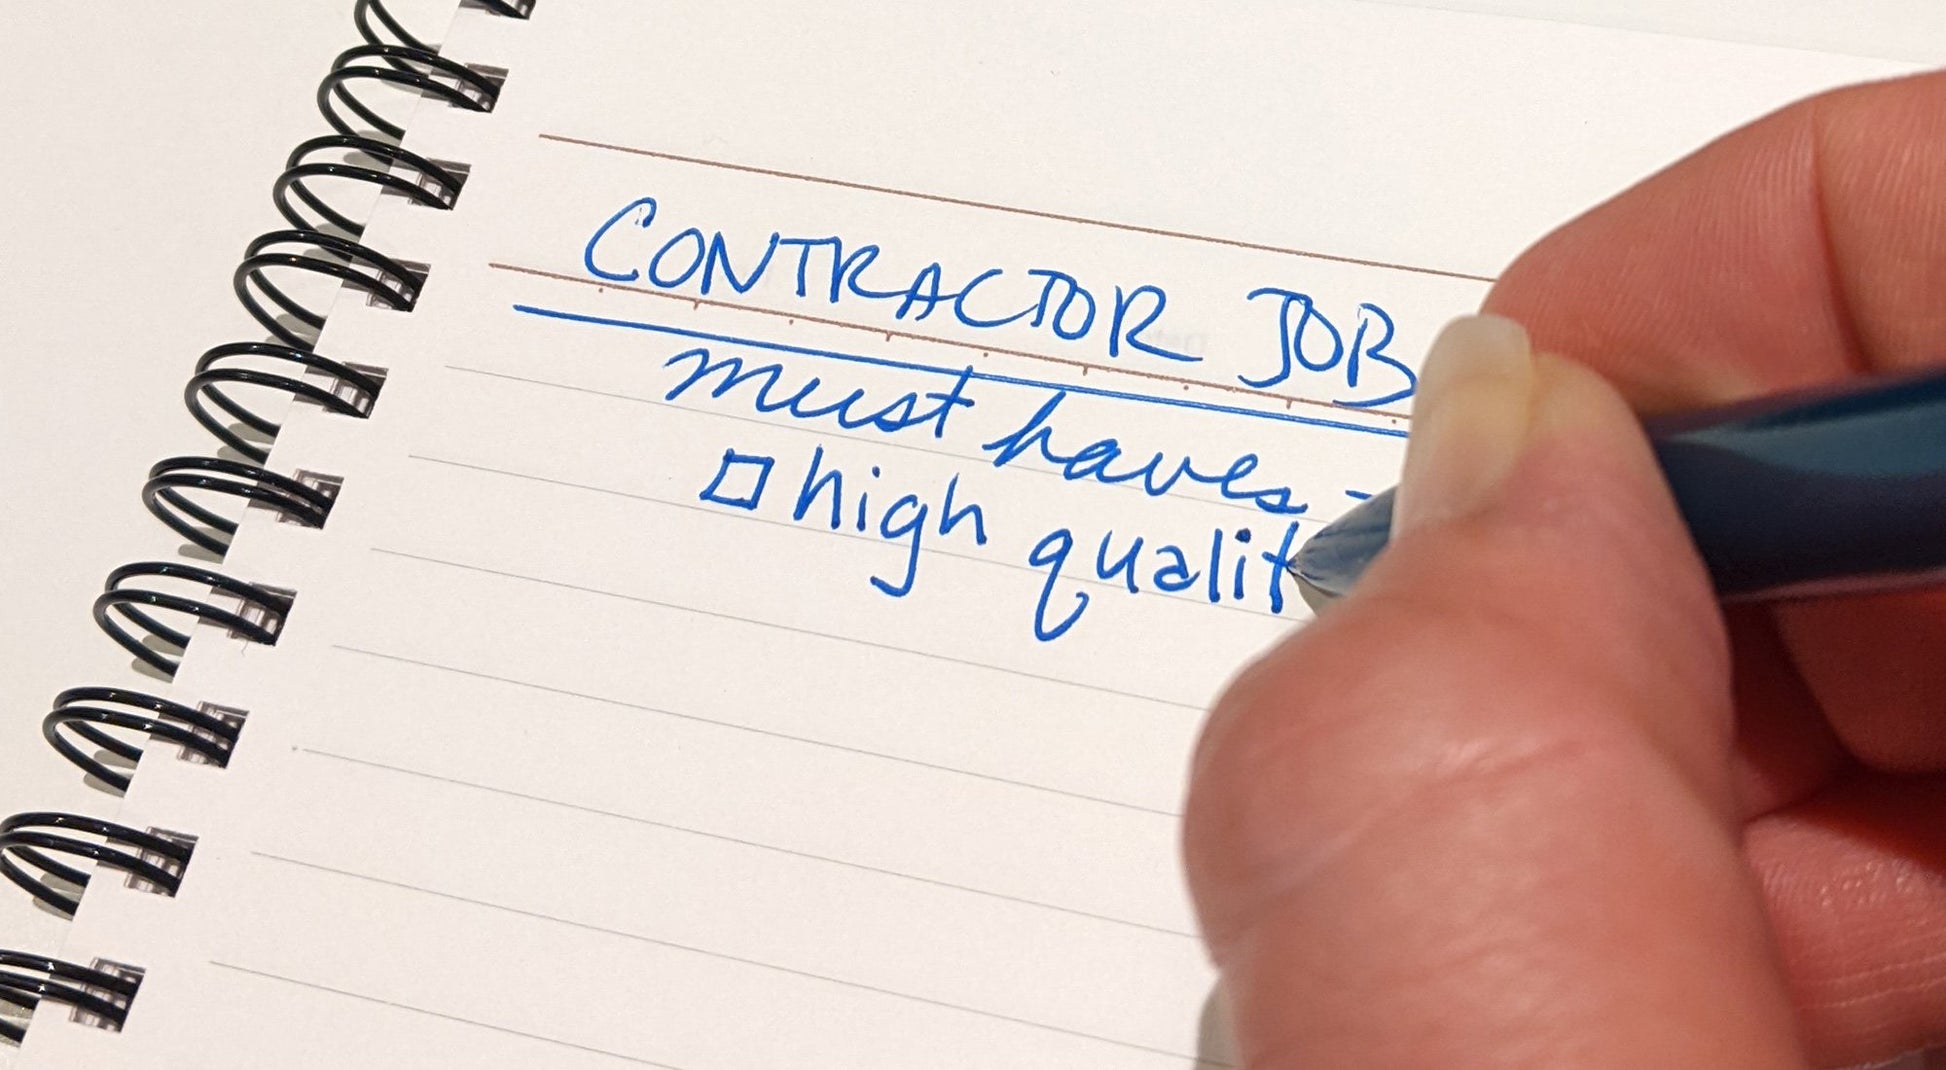 CONTRACTOR JOB
must haves -
□ high qualit